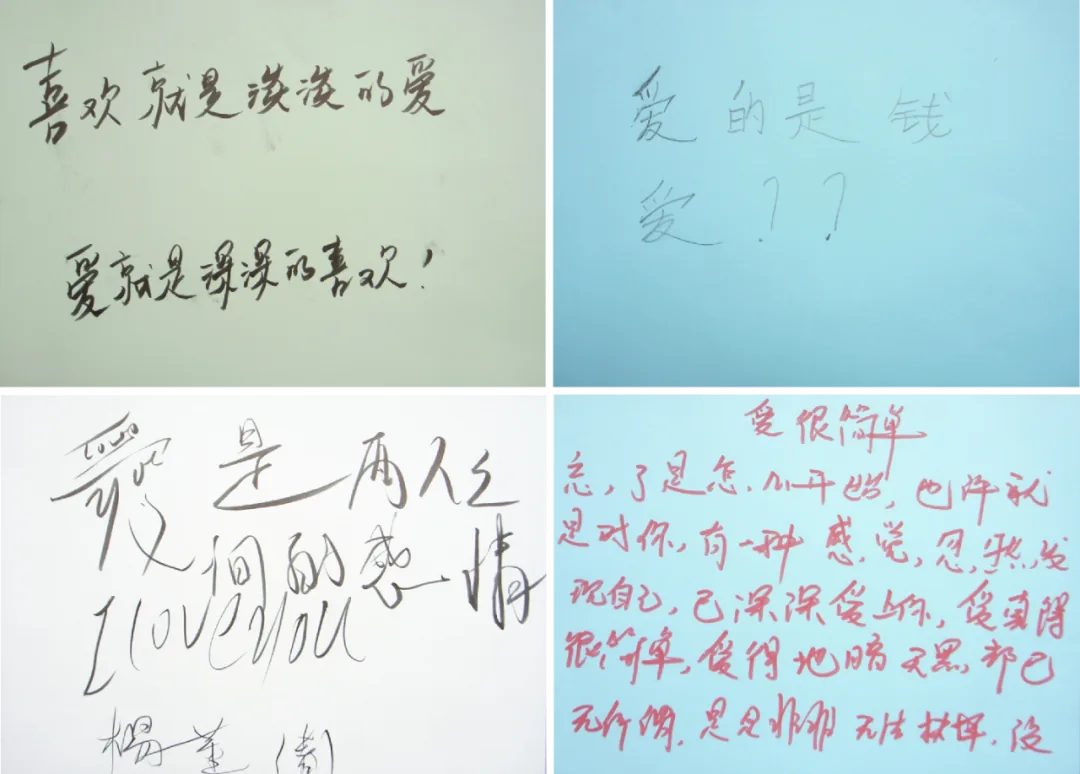 喜欢就是淡淡的爱
爱就是深深的喜欢!
爱的是钱
爱??
愛是两人之
间的感情
I love you
楊
爱很简单
忘了是怎么开始,也许就
是对你,有一种感觉,忽然发
现自己,已深深爱上你,爱真得
很简单,爱得地暗天黑都已
无所谓,是是非非无法抉择,没